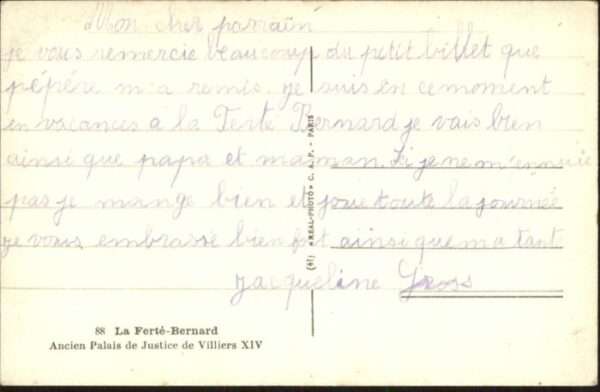 Mon cher parrain
je vous remercie beaucoup du petit billet que
pépére m'a remis. je suis en cemoment
en vacances à la Ferté Bernard je vais bien
ainsi que papa et maman. Si je ne m'ennuie
pas je mange bien et joue toute la journée
je vous embrasse bien fort ainsi que ma tant
Jacqueline
88 La Ferté-Bernard
Ancien Palais de Justice de Villiers XIV
« REAL-PHOTO » C. A. P. - PARIS